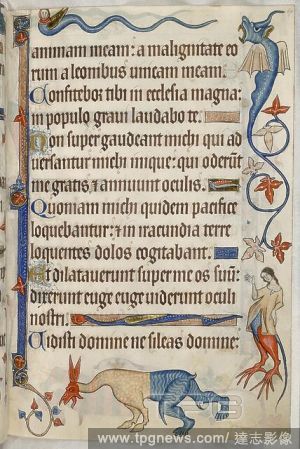 animam meam: a malignitate eo
rum a leonibus unicam meam.
Confitebor tibi in ecclesia magna:
in populo graui laudabo te.
Non super gaudeant michi qui ad
uersantur michi inique: qui oderūt
me gratis ⁊ annuunt oculis.
Quoniam michi quidem pacifice
loquebantur: ⁊ in iracundia terre
loquentes dolos cogitabant.
Et dilatauerunt super me os suū:
dixerunt euge euge uiderunt oculi
nostri.
Uidisti domine ne sileas domine:
www.tpgnews.com/達志影像